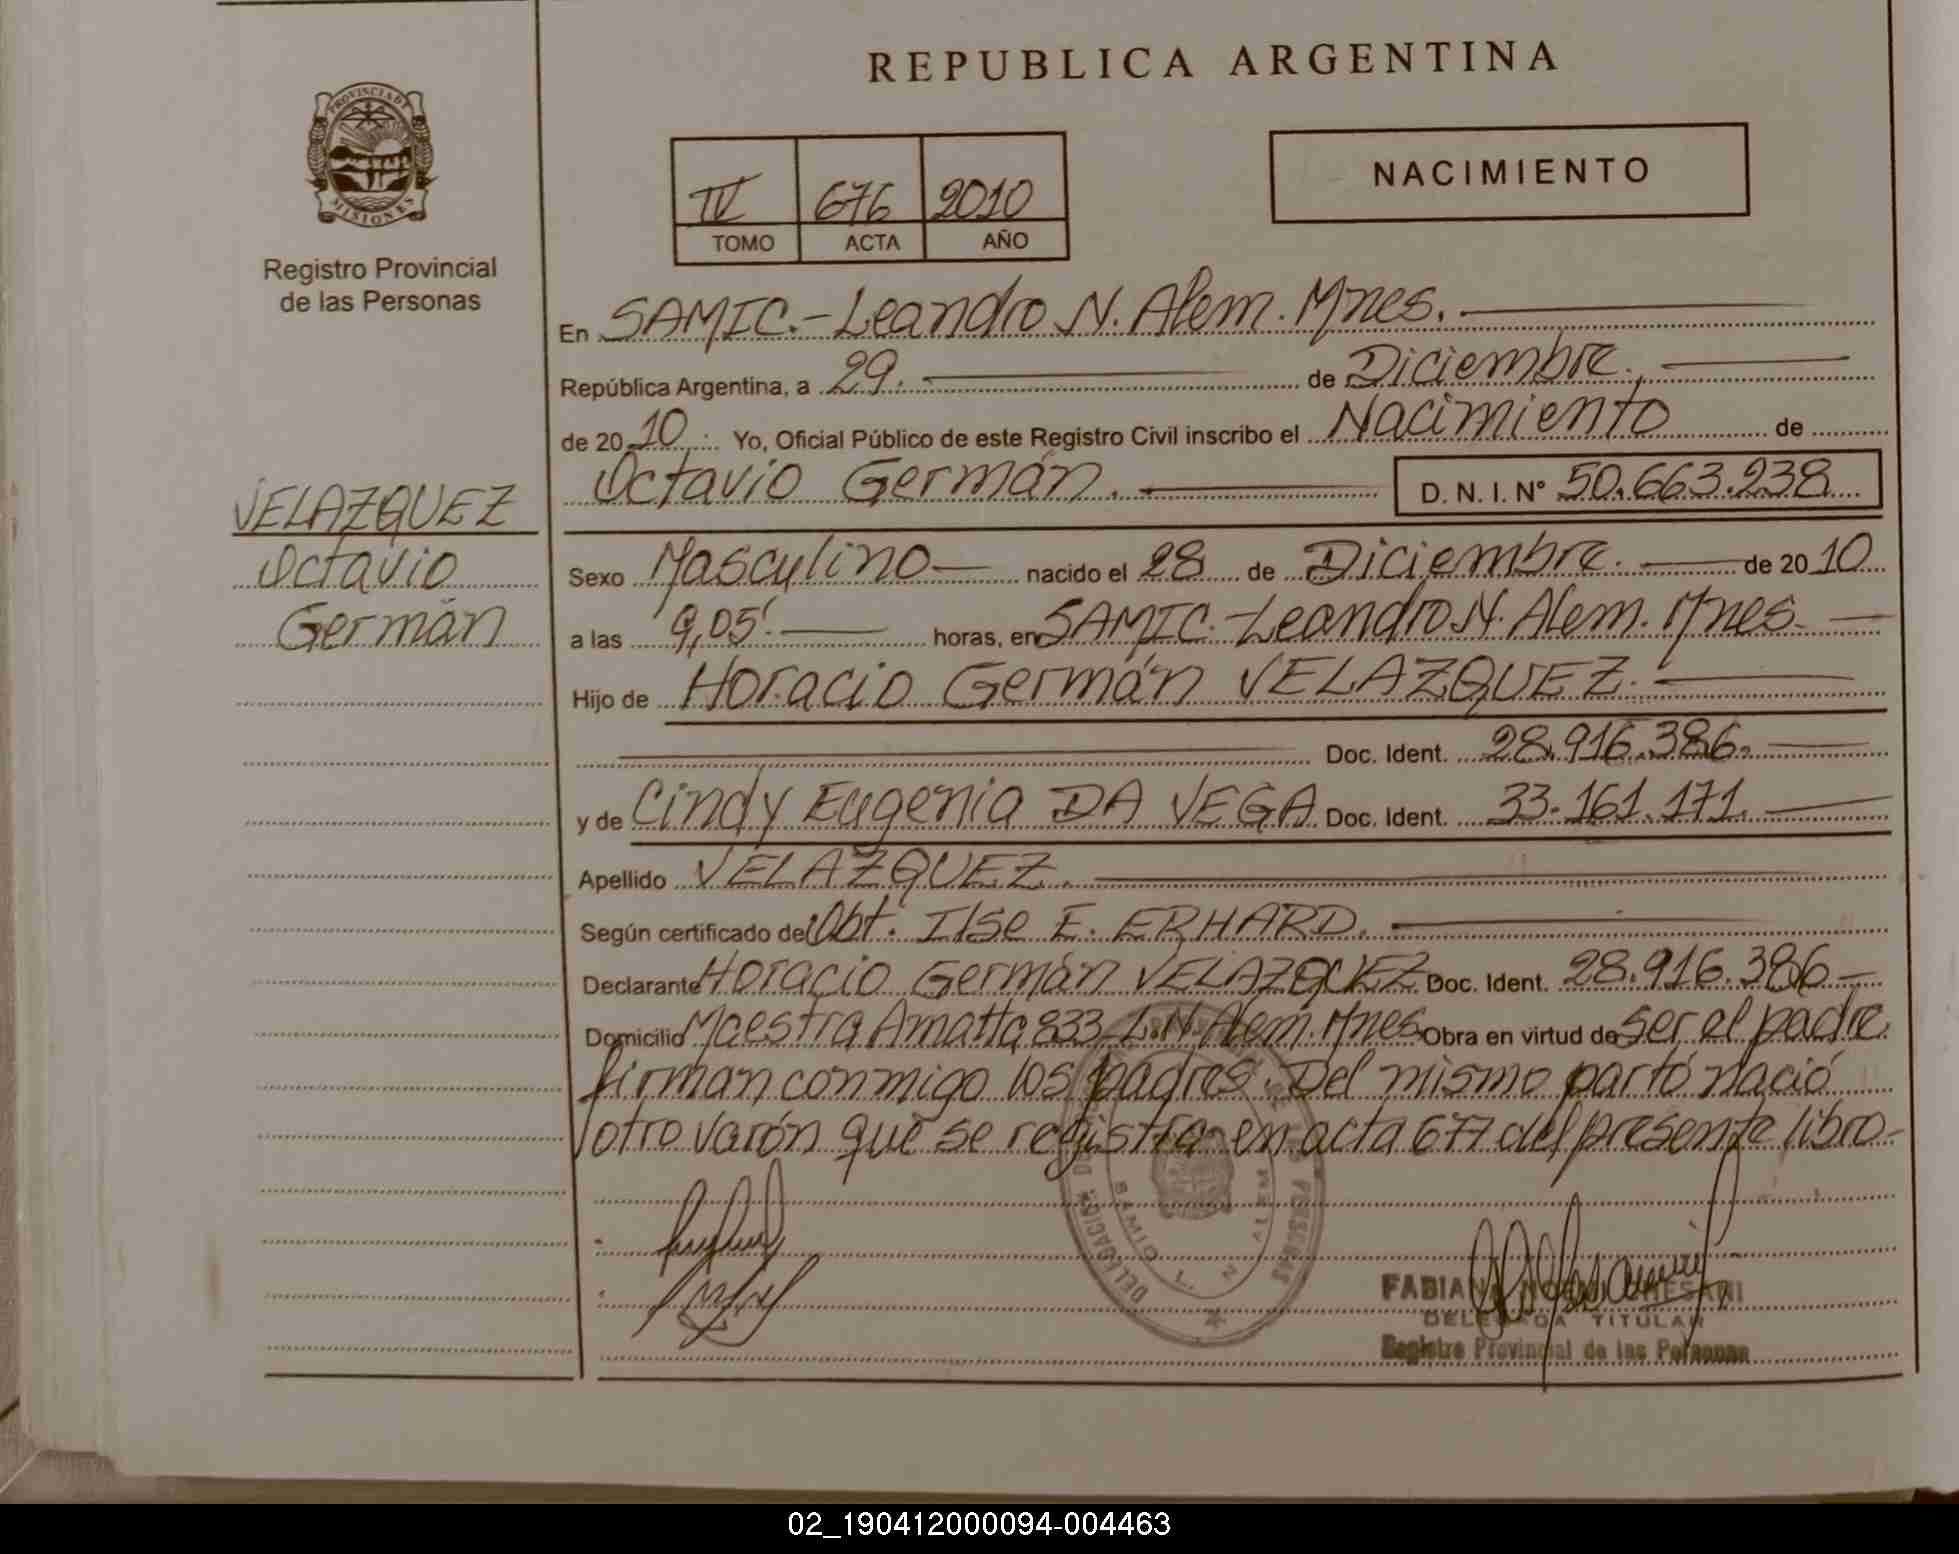 REPUBLICA ARGENTINA
PROVINCIA DE
MISIONES
Registro Provincial
de las Personas
NACIMIENTO
IV 676 2010
TOMO ACTA AÑO
En SAMIC.-Leandro N. Alem. Mnes.
República Argentina, a 29. de Diciembre.
de 2010. Yo, Oficial Público de este Registro Civil inscribo el Nacimiento de
Octavio Germán. D. N. I. N° 50.663.238
VELAZQUEZ
Octavio
Germán
Sexo Masculino nacido el 28 de Diciembre. de 2010
a las 9,05'. horas, en SAMIC.-Leandro N. Alem. Mnes.
Hijo de Horacio Germán VELAZQUEZ.
Doc. Ident. 28.916.386.
y de Cindy Eugenia DA VEGA Doc. Ident. 33.161.171.
Apellido VELAZQUEZ.
Según certificado de Obt. Ilse E. ERHARD.
Declarante Horacio Germán VELAZQUEZ Doc. Ident. 28.916.386
Domicilio Maestra Amatta 833-L.N.Alem.Mnes Obra en virtud de ser el padre
firman conmigo los padres. Del mismo parto nació
otro varón que se registra en acta 677 del presente libro-
DELEGACION
SAMIC L. N. ALEM
PERSONAS
FABIANA
DELEGADA TITULAR
Registro Provincial de las Personas
02_190412000094-004463